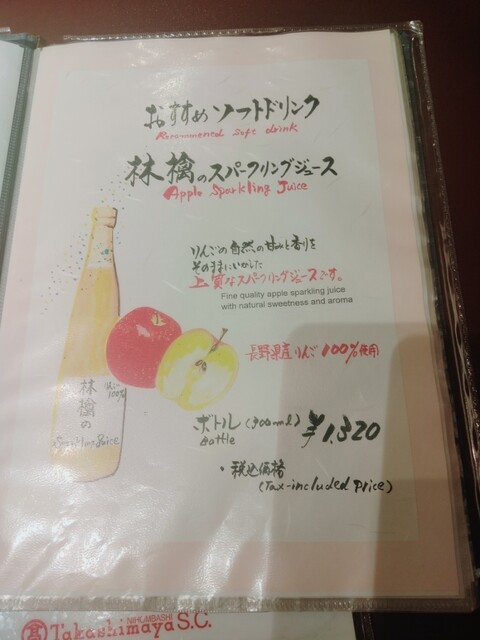 おすすめソフトドリンク
Recommended soft drink
林檎のスパークリングジュース
Apple Sparkling Juice
りんごの自然の甘みと香りを
そのままにいかした
上質なスパークリングジュースです。
Fine quality apple sparkling juice
with natural sweetness and aroma
長野県産りんご100%使用
林檎の
りんご100%
Sparkling Juice
ボトル(300ml) ¥1,320
Bottle
・税込価格
(Tax-included price)
NIHOMBASHI
髙 Takashimaya S.C.